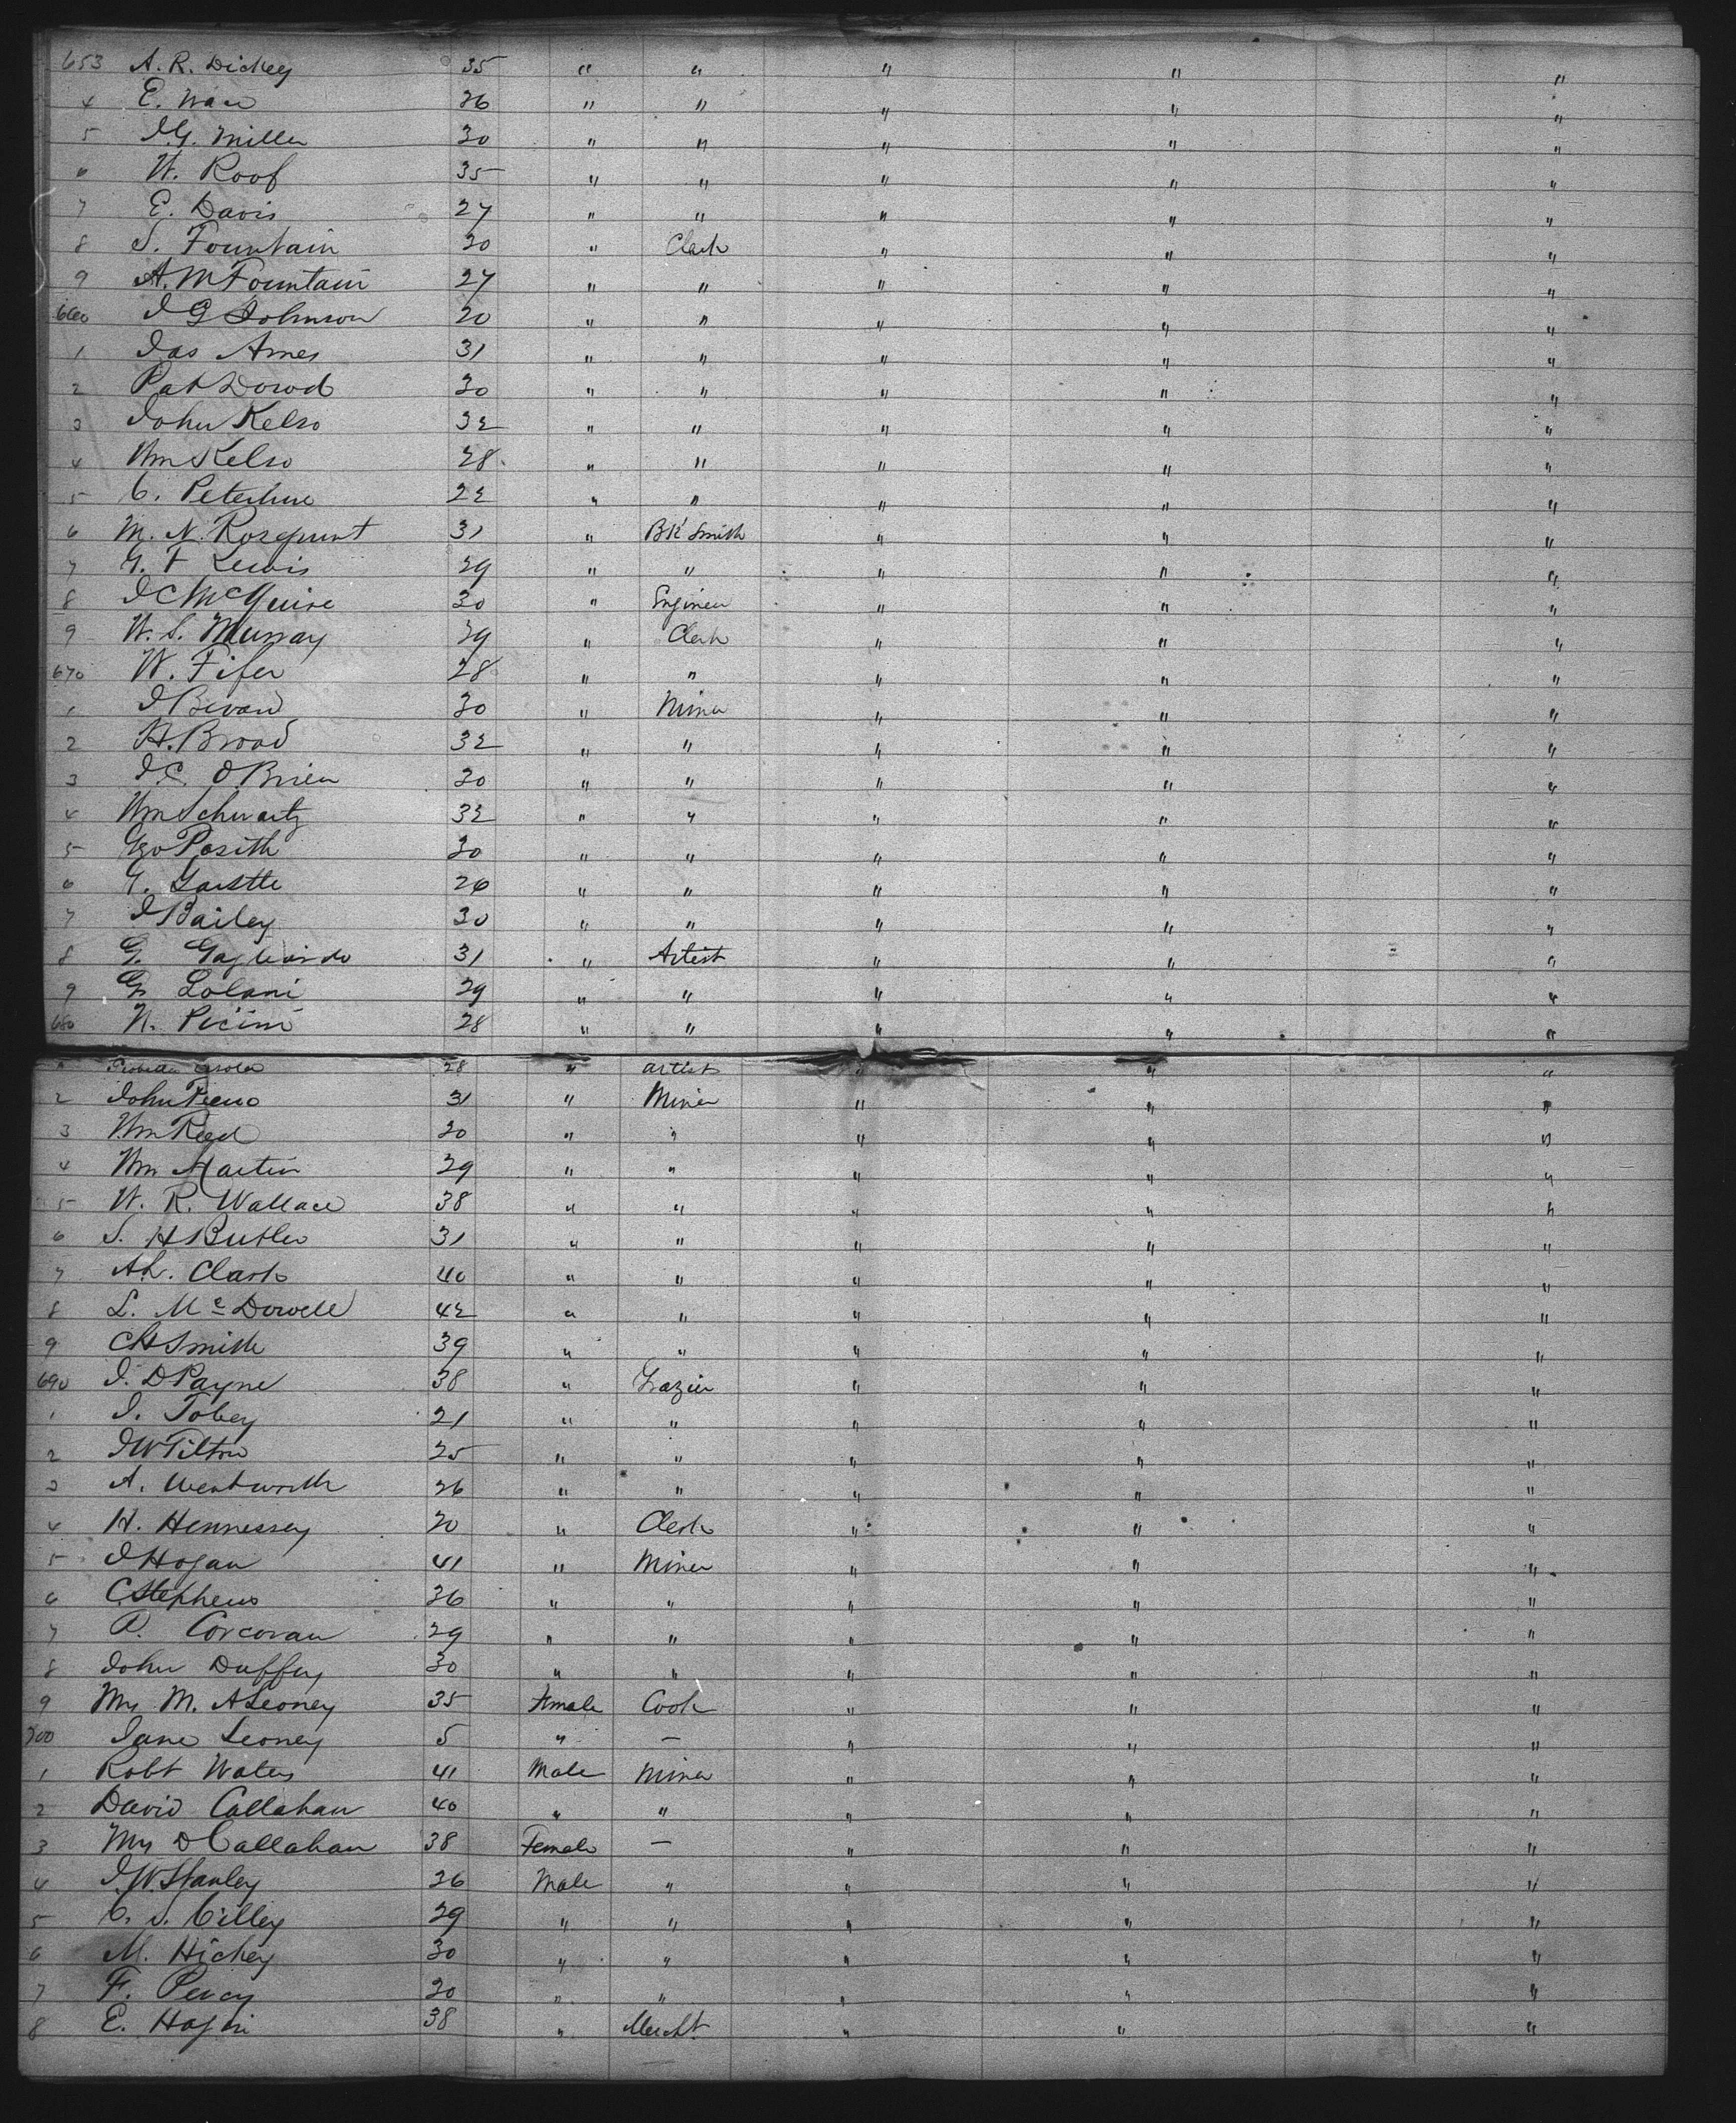 653 A. R. Dickey 35 " " " " "
4 E. Ware 26 " " " " "
5 J.G. Miller 30 " " " " "
6 W. Roof 35 " " " " "
7 E. Davis 27 " " " " "
8 S. Fountain 30 " Clerk " " "
9 A. M Fountain 27 " " " " "
660 J G Johnson 20 " " " " "
1 Jas Ames 31 " " " " "
2 Pat Dowd 30 " " " " "
3 John Kelso 32 " " " " "
4 Wm Kelso 28 " " " " "
5 C. 22 " " " " "
6 M. N. Rosequint 31 " Bk Smith " " "
7 G. F Lewis 29 " " " " "
8 J C McGuire 30 " Engineer " " "
9 W. S. Murray 29 " Clerk " " "
670 W. Fifer 28 " " " " "
1 J Bevan 30 " Miner " " "
2 H. Broad 32 " " " " "
3 J. C. O'Brien 30 " " " " "
4 Wm Schwartz 32 " " " " "
5 Geo Posith 30 " " " " "
6 G. 26 " " " " "
7 J Bailey 30 " " " " "
8 G. Gagliardo 31 " Artist " " "
9 G. Lolani 29 " " " " "
680 N. Picini 28 " " " " "
28 " artist " " "
2 John 31 " Miner " " "
3 Wm Reed 30 " " " " "
4 Wm Martin 29 " " " " "
5 W. R. Wallace 38 " " " " "
6 S. H Butler 31 " " " " "
7 Ah. Clark 40 " " " " "
8 L. McDowell 42 " " " " "
9 C H Smith 39 " " " " "
690 J. D Payne 38 " Grazier " " "
1 J. Tobey 21 " " " " "
2 J W Tilton 25 " " " " "
3 A. Wentworth 26 " " " " "
4 H. Hennessey 20 " Clerk " " "
5 J Hogan 41 " Miner " " "
6 C Stephens 36 " " " " "
7 P. Corcoran 29 " " " " "
8 John Duffey 30 " " " " "
9 Mrs M. A Leoney 35 Female Cook " " "
700 Jane Leoney 5 " — " " "
1 Robt Waters 41 Male Miner " " "
2 David Callahan 40 " " " " "
3 Mrs D Callahan 38 Female — " " "
4 J. W. Stanley 26 Male " " " "
5 C. S. Cilley 29 " " " " "
6 M. Hickey 30 " " " " "
7 F. Percy 30 " " " " "
8 E. Hogan 38 " Mercht. " " "